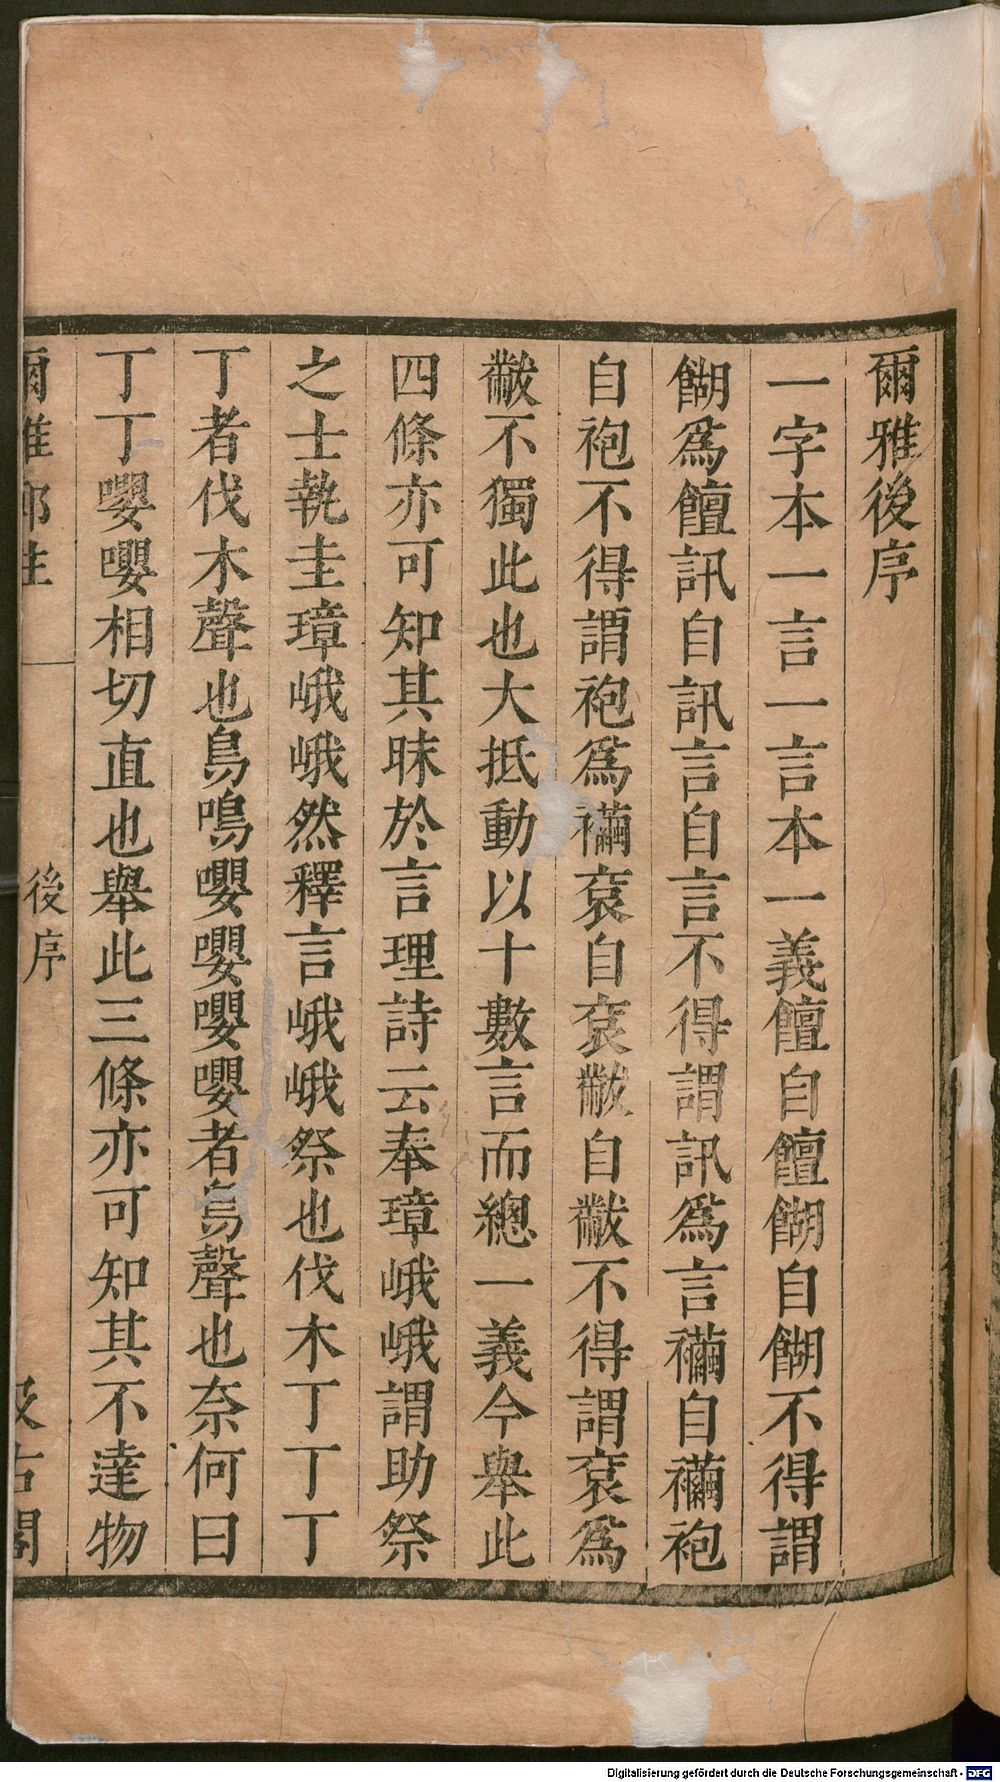 爾雅後序
一字本一言一言本一義饘自饘餬自餬不得謂
餬爲饘訊自訊言自言不得謂訊爲言襺自襺袍
自袍不得謂袍爲襺袞自袞黻自黻不得謂袞爲
黻不獨此也大抵動以十數言而總一義今舉此
四條亦可知其昧於言理詩云奉璋峨峨謂助祭
之士執圭璋峨峨然釋言峨峨祭也伐木丁丁丁
丁者伐木聲也鳥鳴嚶嚶嚶嚶者鳥聲也奈何曰
丁丁嚶嚶相切直也舉此三條亦可知其不達物
爾雅郭注 後序 汲古閣
Digitalisierung gefördert durch die Deutsche Forschungsgemeinschaft - DFG